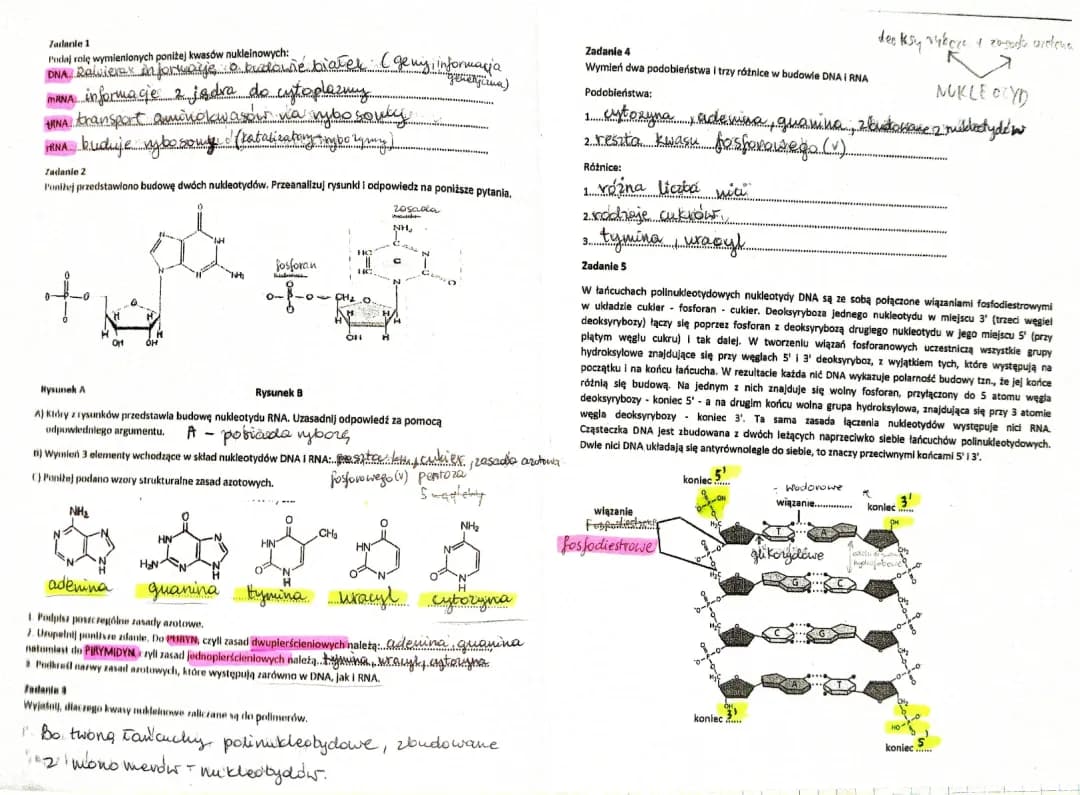 Zadanie 1
Podaj rolę wymienionych poniżej kwasów nukleinowych:
DNA Zawieraz informację o budowie białek (geny, informacja genetyczna)
mRNA informacje z jądra do cytoplazmy
tRNA transport aminokwasów na rybosomy
rRNA buduje rybosomy (katalizatory rybozymy)
Zadanie 2
Poniżej przedstawiono budowę dwóch nukleotydów. Przeanalizuj rysunki i odpowiedz na poniższe pytania.
zasada
fosforan
NH₂
O
N
NH
N
N
NH₂
O-P-O
O
H
H
OH
OH
O-P-O-CH₂
O
HC
HC
C
N
C
O
N
H
H
OH
H
Rysunek A
Rysunek B
A) Który z rysunków przedstawia budowę nukleotydu RNA. Uzasadnij odpowiedź za pomocą
odpowiedniego argumentu. A - posiada rybozę
B) Wymień 3 elementy wchodzące w skład nukleotydów DNA i RNA: reszta kw. fosforowego (V), cukier pentoza 5 węglowy, zasada azotowa
C) Poniżej podano wzory strukturalne zasad azotowych.
NH₂
O
O
CH₃
O
NH₂
HN
H₂N
HN
HN
adenina guanina tymina uracyl cytozyna
1 Podpisz poszczególne zasady azotowe.
2. Uzupełnij poniższe zdanie. Do PURYN, czyli zasad dwupierścieniowych należą: adenina, guanina
natomiast do PIRYMIDYN czyli zasad jednopierścieniowych należą tymina, uracyl, cytozyna.
3 Podkreśl nazwy zasad azotowych, które występują zarówno w DNA, jak i RNA.
Zadanie 3
Wyjaśnij, dlaczego kwasy nukleinowe zaliczane są do polimerów.
Bo tworzą łańcuchy polinukleotydowe, zbudowane
z monomerów - nukleotydów.
zasada azotowa
NUKLEOTYD
Zadanie 4
Wymień dwa podobieństwa i trzy różnice w budowie DNA i RNA
Podobieństwa:
1. cytozyna, adenina, guanina, zbudowane z nukleotydów
2. reszta kwasu fosforowego (V)
Różnice:
1. różna liczba nici
2. rodzaje cukrów
3. tymina, uracyl
Zadanie 5
W łańcuchach polinukleotydowych nukleotydy DNA są ze sobą połączone wiązaniami fosfodiestrowymi
w układzie cukier - fosforan - cukier. Deoksyryboza jednego nukleotydu w miejscu 3' (trzeci węgiel
deoksyrybozy) łączy się poprzez fosforan z deoksyrybozą drugiego nukleotydu w jego miejscu 5' (przy
piątym węglu cukru) i tak dalej. W tworzeniu wiązań fosforanowych uczestniczą wszystkie grupy
hydroksylowe znajdujące się przy węglach 5' i 3' deoksyryboz, z wyjątkiem tych, które występują na
początku i na końcu łańcucha. W rezultacie każda nić DNA wykazuje polarność budowy tzn., że jej końce
różnią się budową. Na jednym z nich znajduje się wolny fosforan, przyłączony do 5 atomu węgla
deoksyrybozy - koniec 5' - a na drugim końcu wolna grupa hydroksylowa, znajdująca się przy 3 atomie
węgla deoksyrybozy - koniec 3'. Ta sama zasada łączenia nukleotydów występuje nici RNA.
Cząsteczka DNA jest zbudowana z dwóch leżących naprzeciwko siebie łańcuchów polinukleotydowych.
Dwie nici DNA układają się antyrównolegle do siebie, to znaczy przeciwnymi końcami 5' i 3'.
koniec 5'
wodorowe
wiązanie
koniec 3'
wiązanie
fosfodiestrowe
glikozydowe
OH
H₂C
T A
G C
C G
A T
OH
CH₂
HO
koniec 3'
koniec 5'